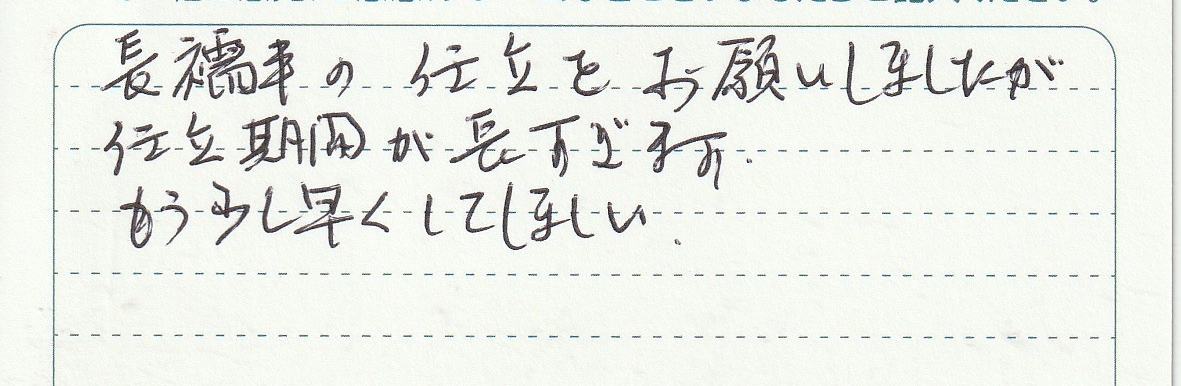 長襦半の仕立をお願いしましたが
仕立期間が長すぎます.
もう少し早くしてほしい.